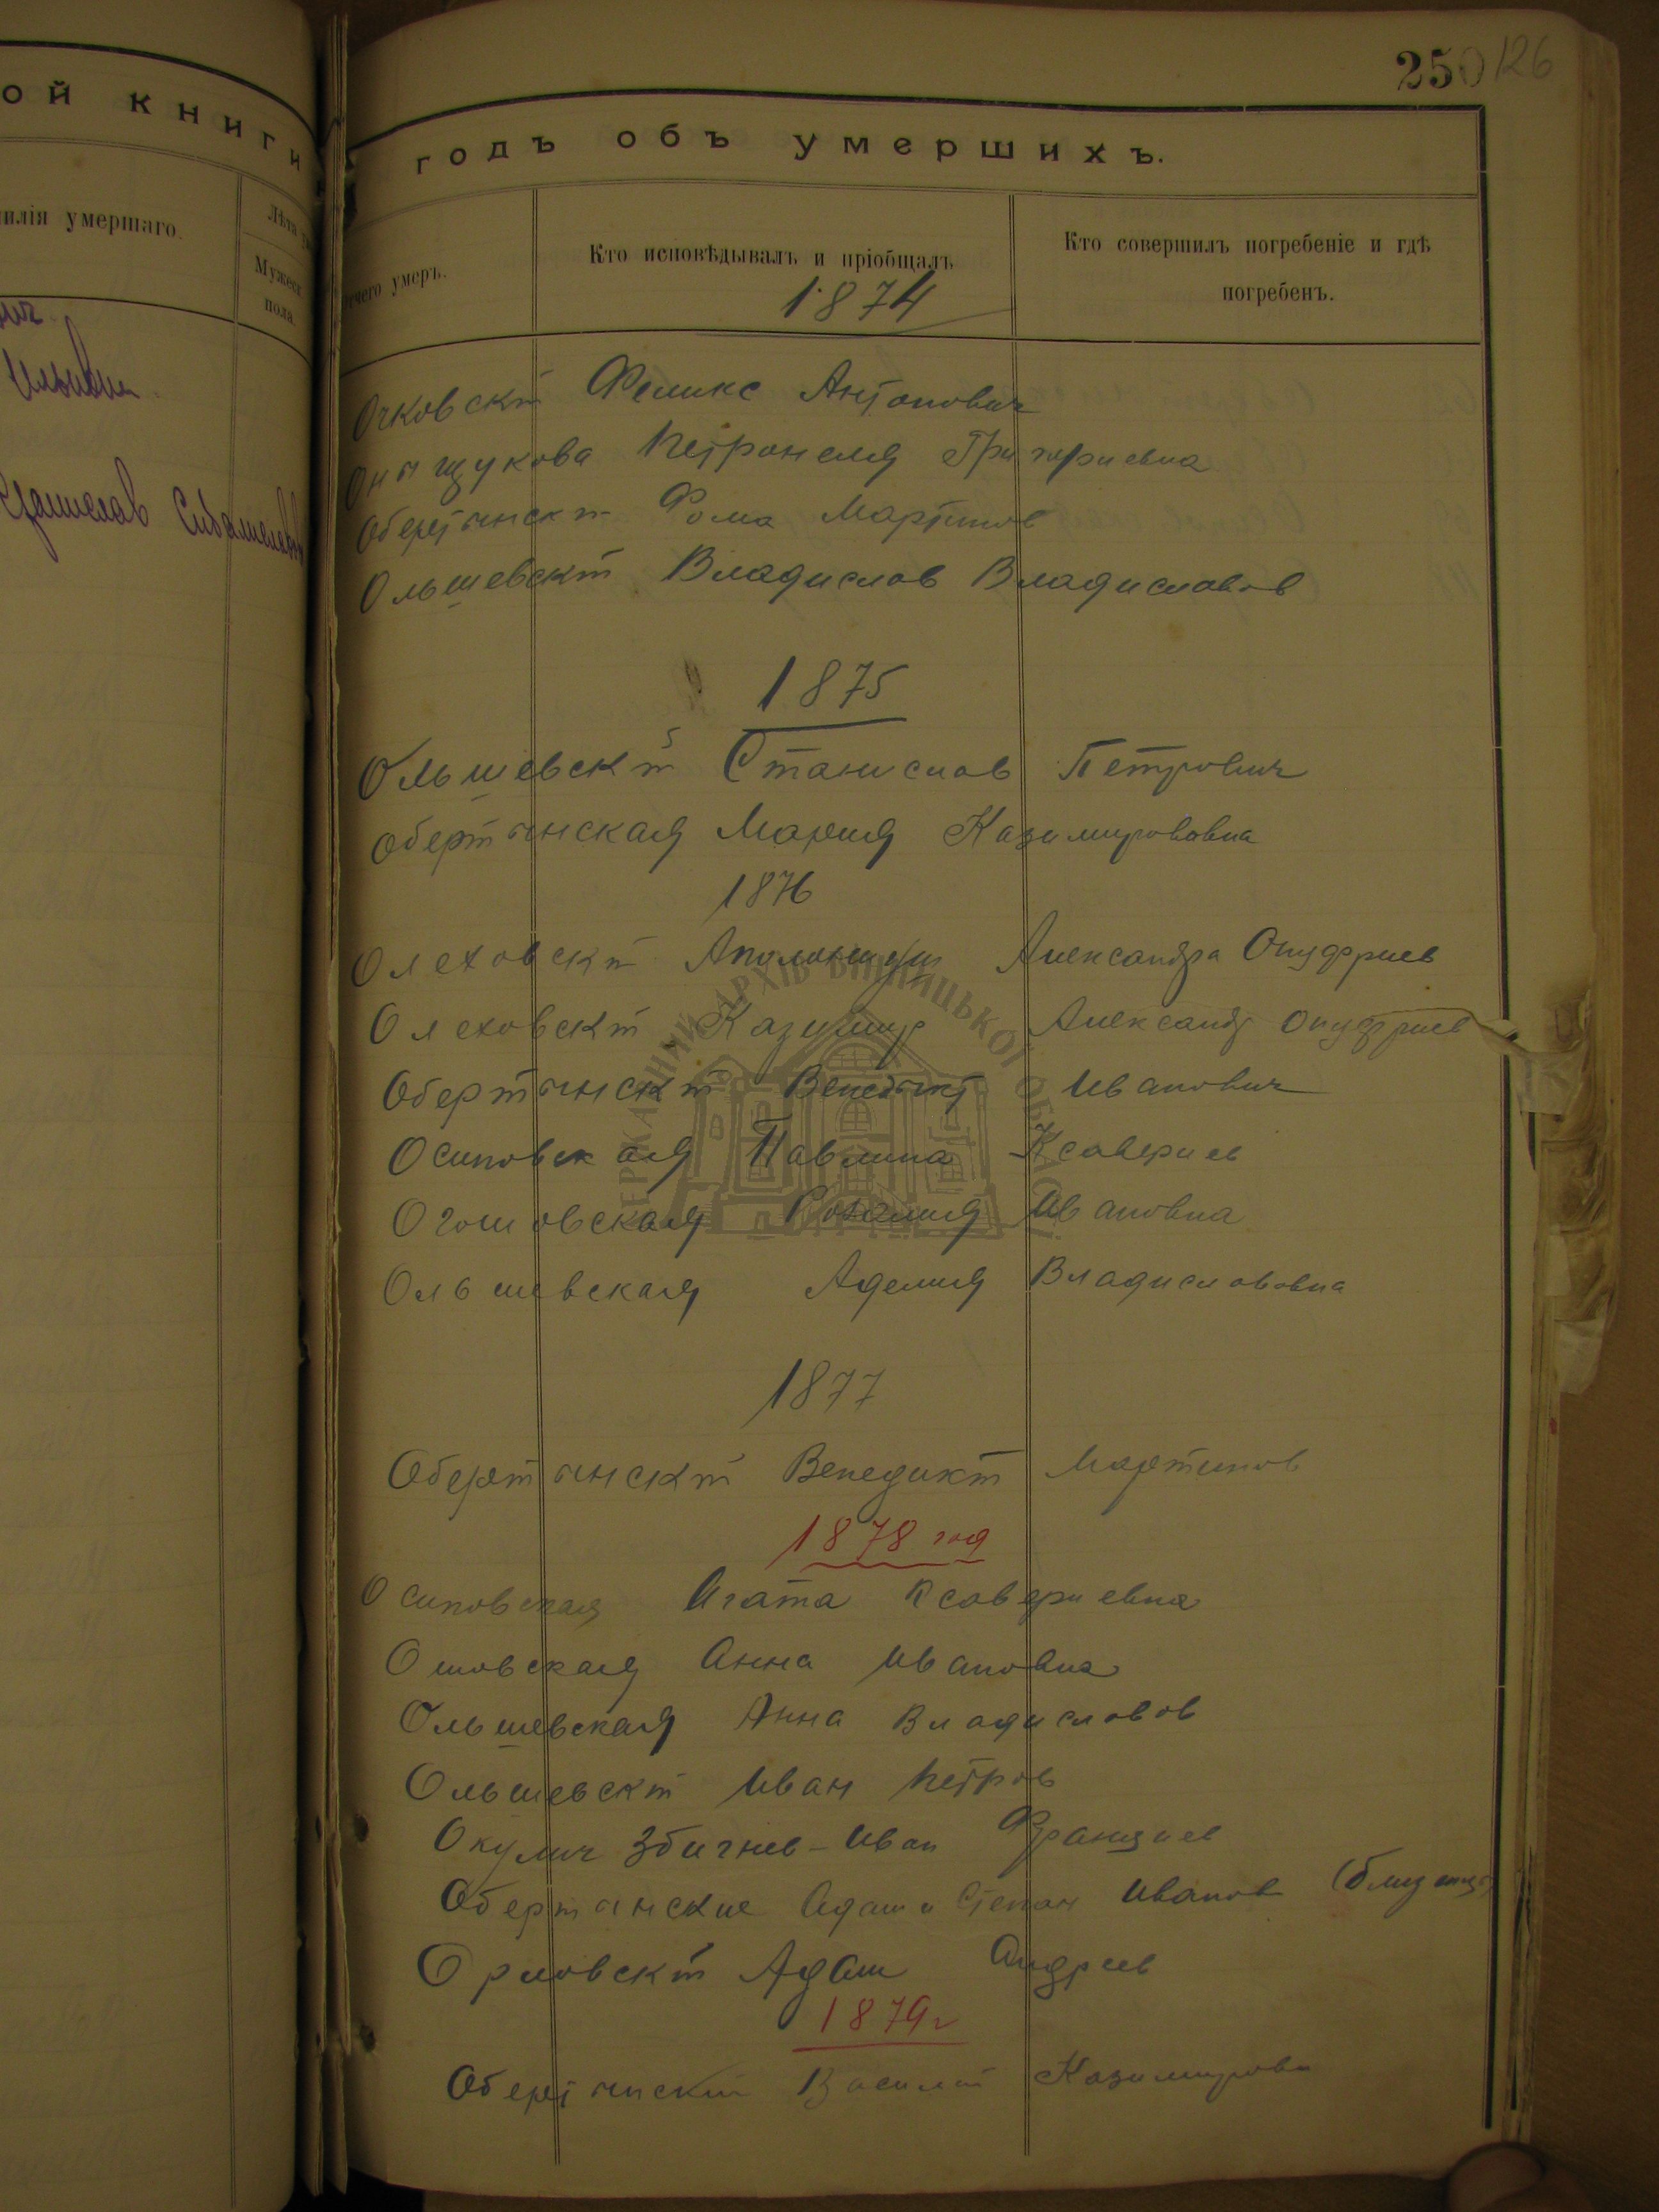 ой книги
годъ объ умершихъ.
250 126
илія умершаго.
Лѣта
Мужеск.
пола.
чего умеръ.
Кто исповѣдывалъ и пріобщалъ
Кто совершилъ погребеніе и гдѣ
погребенъ.
1874
Очковскій Феликс Антонович
Онищукова Петронеля Григориевна
Обертынский Фома Мартинов
Ольшевский Владислав Владиславов
1875
Ольшевский Станислав Петрович
Обертынская Мария Казимировна
1876
Олеховский Аполинари Александра Онуфриев
Олеховский Казимир Александр Онуфриев
Обертынский Бенедыкт Иванович
Осиповская Павлина Ксавериев
Огошовская Розалия Ивановна
Ольшевская Аделия Владиславовна
1877
Обертынский Венедикт Мартинов
1878 год
Осиповская Агата Ксавериевна
Ошовская Анна Ивановна
Ольшевская Анна Владиславов
Ольшевский Иван Петров
Окулич Збигнев-Иван Францев
Обертынские Адам и Степан Иванов (близнец)
Орловский Адам Андреев
1879г
Обертынский Василий Казимиров
Станислав
ДЕРЖАВНИЙ АРХІВ ВІННИЦЬКОЇ ОБЛАСТІ